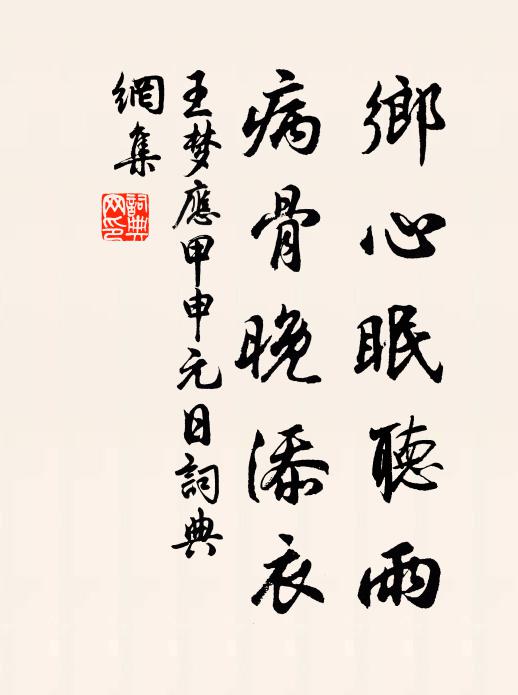 鄉心眠聽雨
病骨晚添衣
王梦應甲申元日詞典
網集
詞典網印